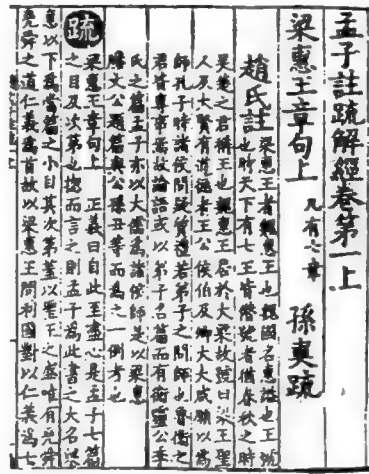 孟子註疏解經卷第一上
梁惠王章句上 凡有七章 孫奭疏
趙氏註 梁惠王者魏惠王也魏國名惠謚也王號
也時天下有七王皆僭號者猶春秋之時
吳楚之君稱王也魏惠王居於大梁故號曰梁王聖
人及大賢有道德者王公侯伯及卿大夫咸願以為
師孔子時諸侯問疑質禮若弟子之問師也魯衛之
君皆專事焉故論語或以弟子名篇而有衛靈公季
氏之篇孟子亦以大儒為諸侯師是以梁惠
滕文公題篇與公孫丑等而為之一例者也
疏 梁惠王章句上 正義曰自此至盡心是孟子七篇
之目及次第也揔而言之則孟子為此書之大名梁
惠以下為當篇之小目其次第蓋以聖王之盛唯有堯舜
堯舜之道仁義為首故以梁惠王問利國對以仁義為七